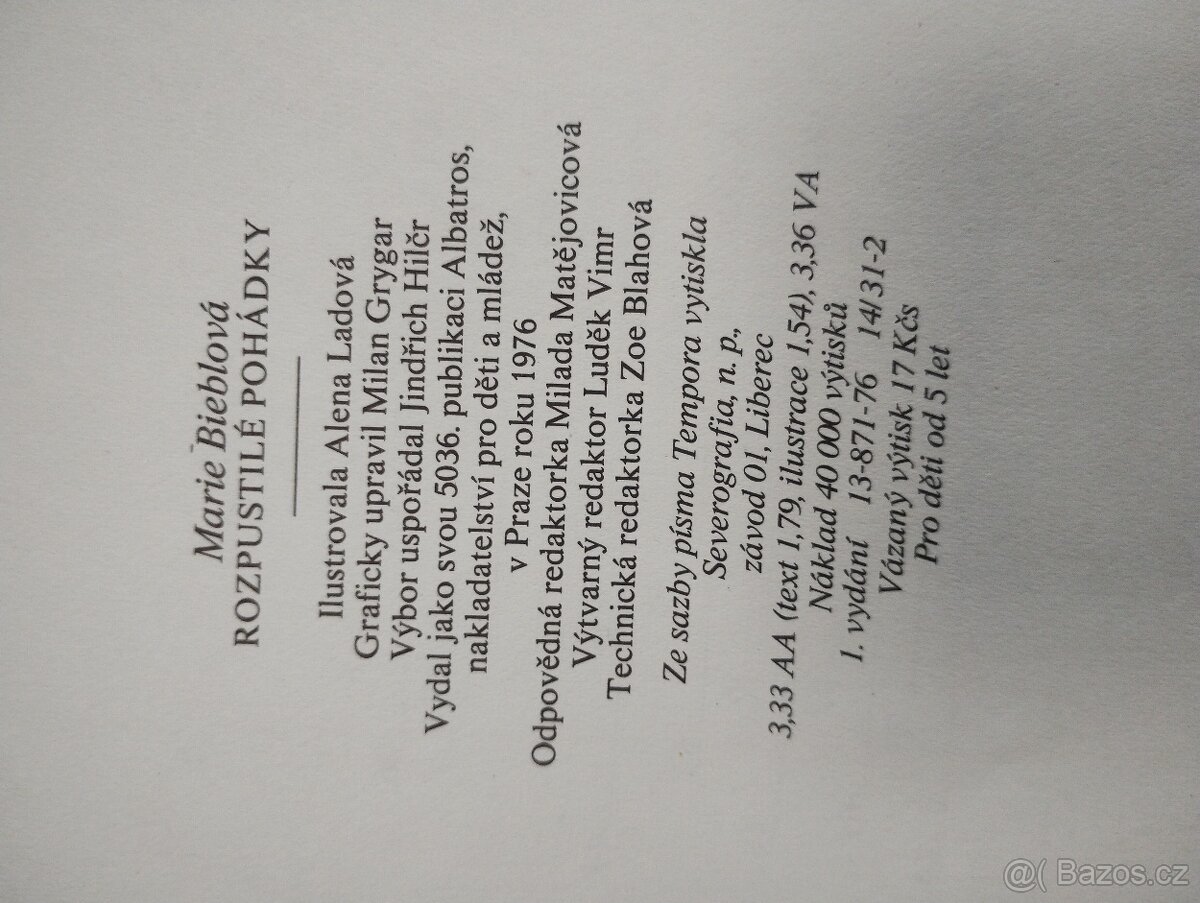 Marie Bieblová
ROZPUSTILÉ POHÁDKY
Ilustrovala Alena Ladová
Graficky upravil Milan Grygar
Výbor uspořádal Jindřich Hilčr
Vydal jako svou 5036. publikaci Albatros,
nakladatelství pro děti a mládež,
v Praze roku 1976
Odpovědná redaktorka Milada Matějovicová
Výtvarný redaktor Luděk Vimr
Technická redaktorka Zoe Blahová
Ze sazby písma Tempora vytiskla
Severografia, n. p.,
závod 01, Liberec
3,33 AA (text 1,79, ilustrace 1,54), 3,36 VA
Náklad 40 000 výtisků
1. vydání 13-871-76 14/31-2
Vázaný výtisk 17 Kčs
Pro děti od 5 let
@( Bazos.cz